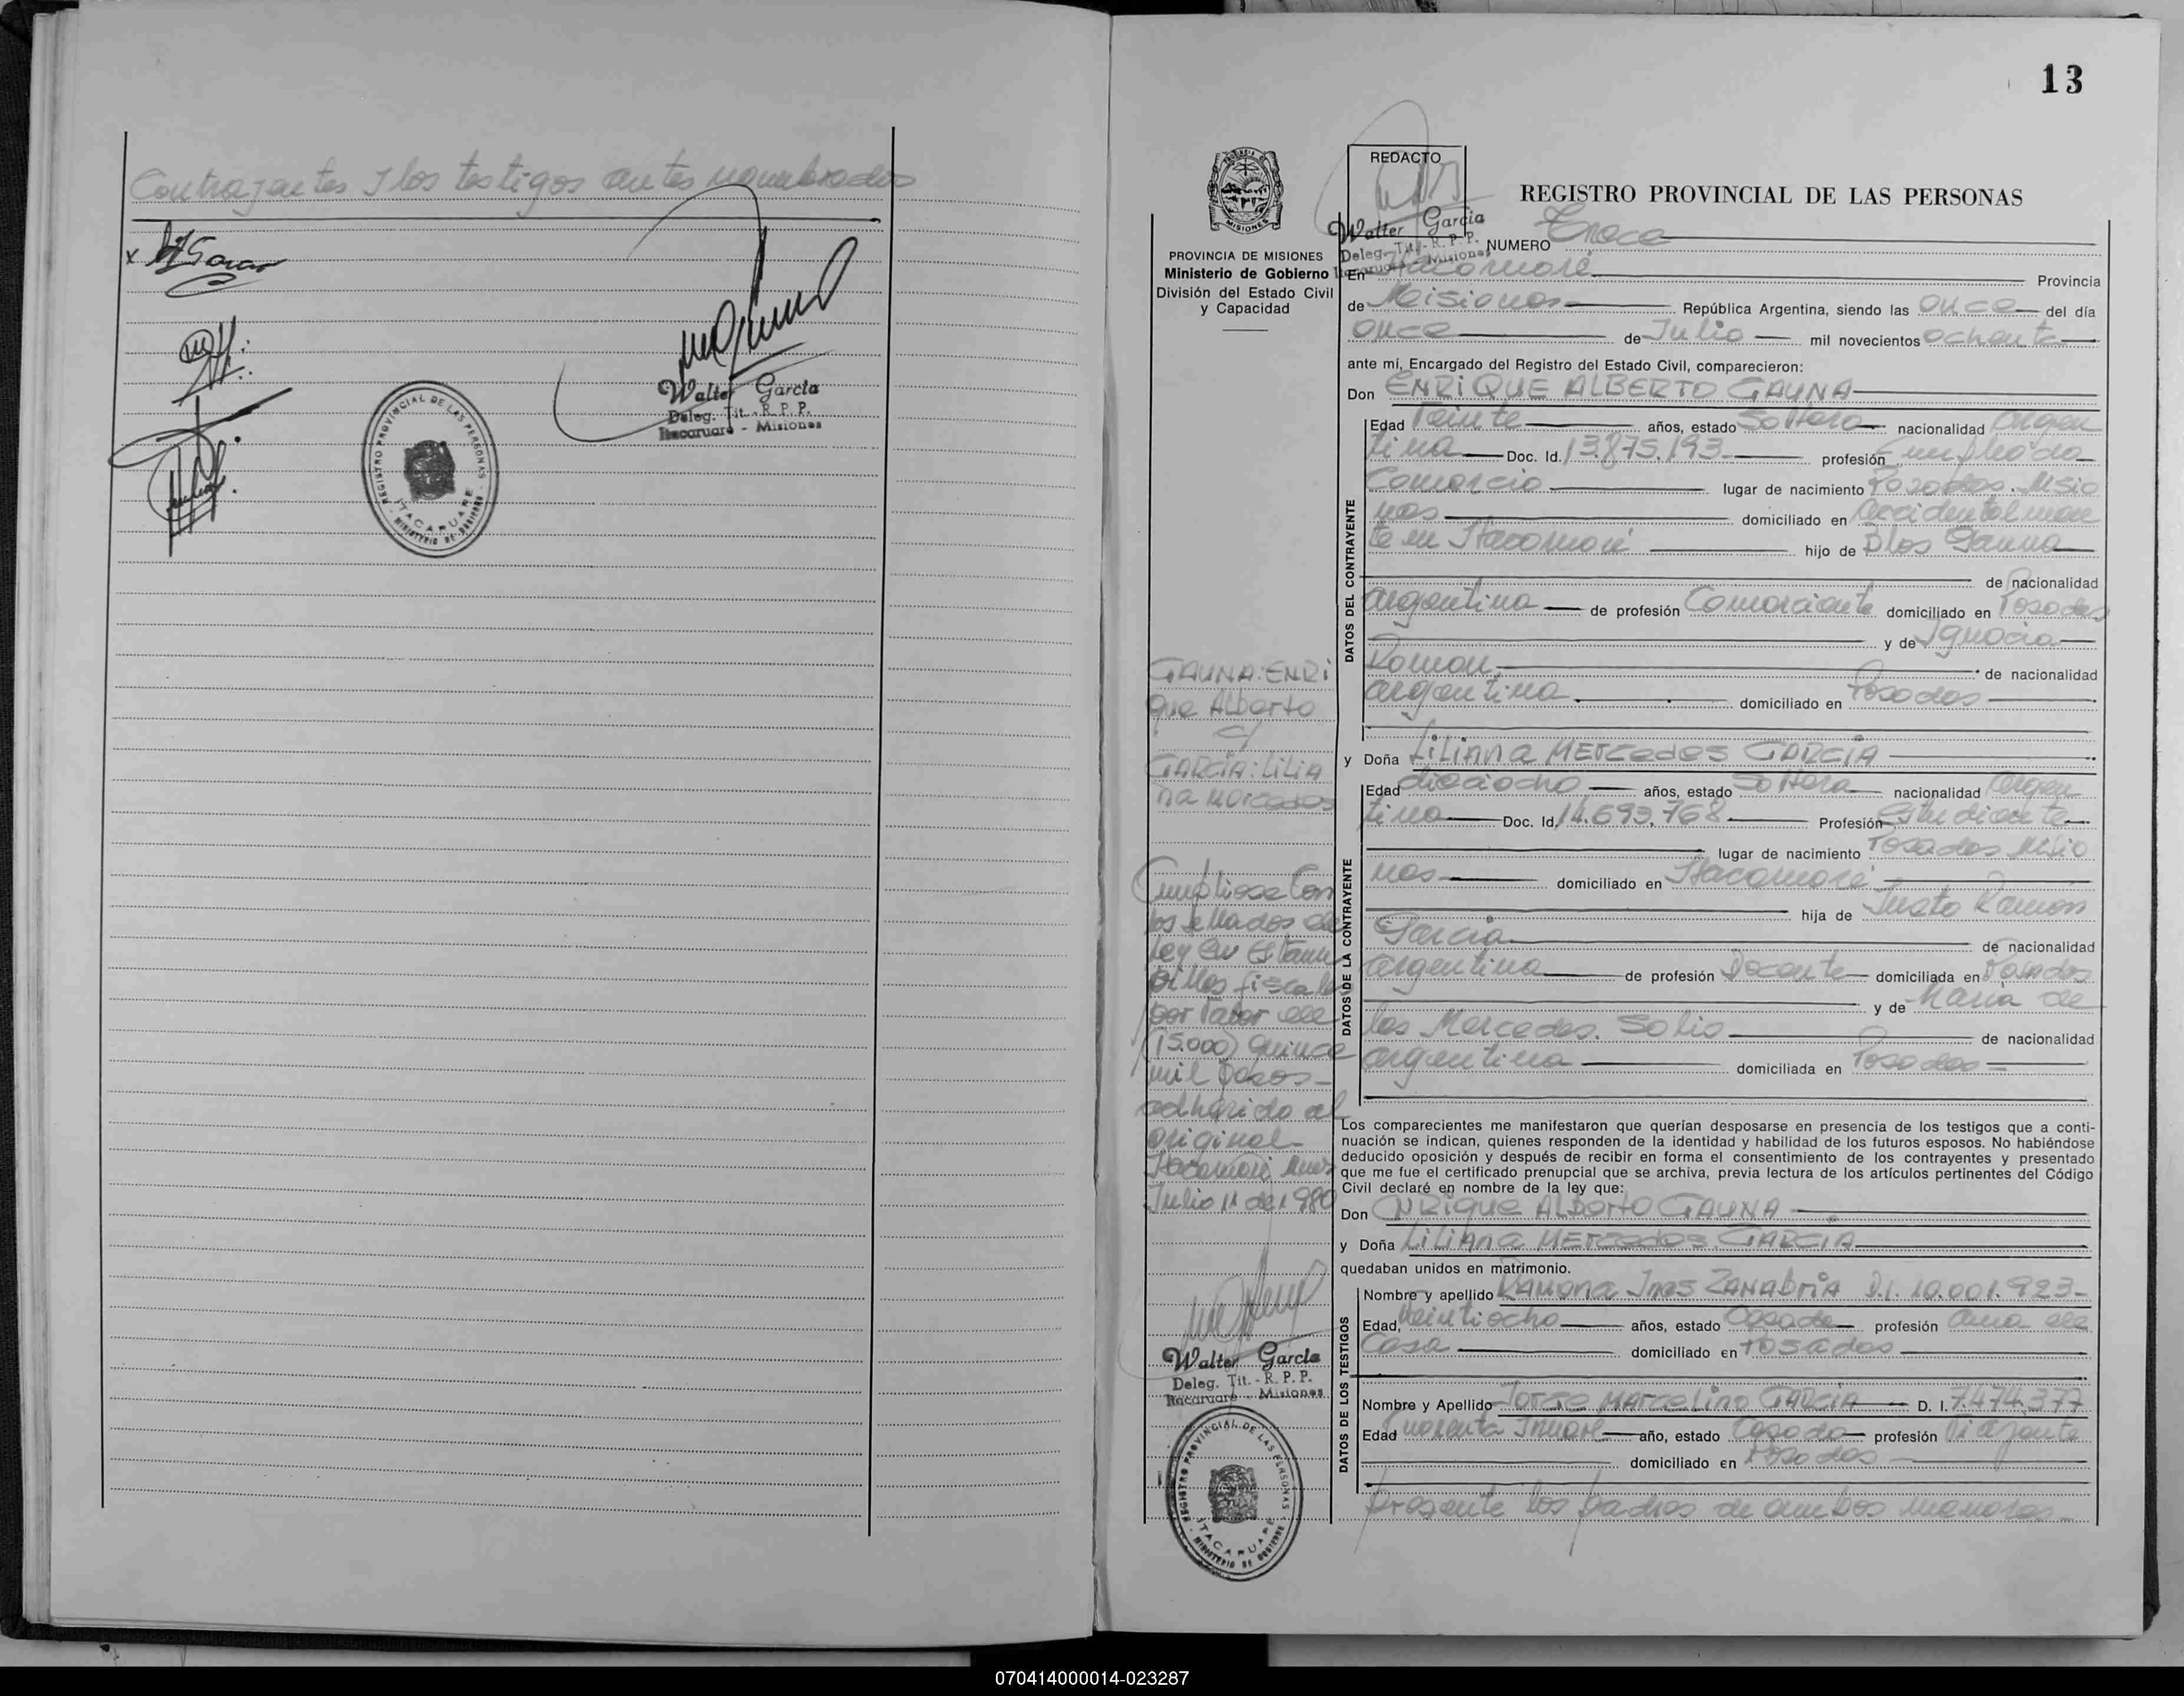 Contrayentes y los testigos antes nombrados
Walter Garcia
Deleg. Tit. - R. P. P.
Itacaruaré - Misiones
REGISTRO PROVINCIAL DE LAS PERSONAS
ITACARUARE
MINISTERIO DE GOBIERNO
13
MISIONES
PROVINCIA DE MISIONES
Ministerio de Gobierno
División del Estado Civil
y Capacidad
REDACTO
Walter Garcia
Deleg. Tit. - R. P. P.
Itacaruaré - Misiones
REGISTRO PROVINCIAL DE LAS PERSONAS
NUMERO Trece
En Itacaruaré Provincia
de Misiones República Argentina, siendo las once del día
once de Julio mil novecientos ochenta
ante mí, Encargado del Registro del Estado Civil, comparecieron:
Don ENRIQUE ALBERTO GAUNA
DATOS DEL CONTRAYENTE
Edad veinte años, estado Soltero nacionalidad Argen
tina Doc. Id. 13.875.193 profesión Empleado
Comercio lugar de nacimiento Posadas. Misio
nes domiciliado en Accidentalmen
te en Itacaruaré hijo de Blas Gauna
de nacionalidad
argentina de profesión Comerciante domiciliado en Posadas
y de Ignacia
Roman de nacionalidad
argentina domiciliado en Posadas
y Doña LILIANA MERCEDES GARCIA
DATOS DE LA CONTRAYENTE
Edad dieciocho años, estado Soltera nacionalidad Argen
tina Doc. Id. 14.693.768 Profesión Estudiante
lugar de nacimiento Posadas Misio
nes domiciliado en Itacaruaré
hija de Justo Ramon
Garcia de nacionalidad
argentina de profesión Docente domiciliada en Posadas
y de Maria de
las Mercedes. Solis de nacionalidad
argentina domiciliada en Posadas
Los comparecientes me manifestaron que querían desposarse en presencia de los testigos que a conti-
nuación se indican, quienes responden de la identidad y habilidad de los futuros esposos. No habiéndose
deducido oposición y después de recibir en forma el consentimiento de los contrayentes y presentado
que me fue el certificado prenupcial que se archiva, previa lectura de los artículos pertinentes del Código
Civil declaré en nombre de la ley que:
Don ENRIQUE ALBERTO GAUNA
y Doña LILIANA MERCEDES GARCIA
quedaban unidos en matrimonio.
DATOS DE LOS TESTIGOS
Nombre y apellido Ramona Ines ZANABRIA D.I. 10.001.923-
Edad, Veintiocho años, estado Casada profesión Ama de
Casa domiciliado en Posadas
Nombre y Apellido JORGE MARCELINO GARCIA D. I. 7.474.377
Edad año, estado Casado profesión Viajante
domiciliado en Posadas
Presente los padres de ambos menores
GAUNA: ENRI
que Alberto
c/
GARCIA: LILIA
na Mercedes
Cumpliose con
los sellados de
ley en Estam
pillas fiscales
por valor de
(15.000) quince
mil pesos-
adherido al
original
Itacaruaré Mnes
Julio 11 de 1980
Walter Garcia
Deleg. Tit. - R. P. P.
Itacaruaré - Misiones
REGISTRO PROVINCIAL DE LAS PERSONAS
ITACARUARE
MINISTERIO DE GOBIERNO
070414000014-023287